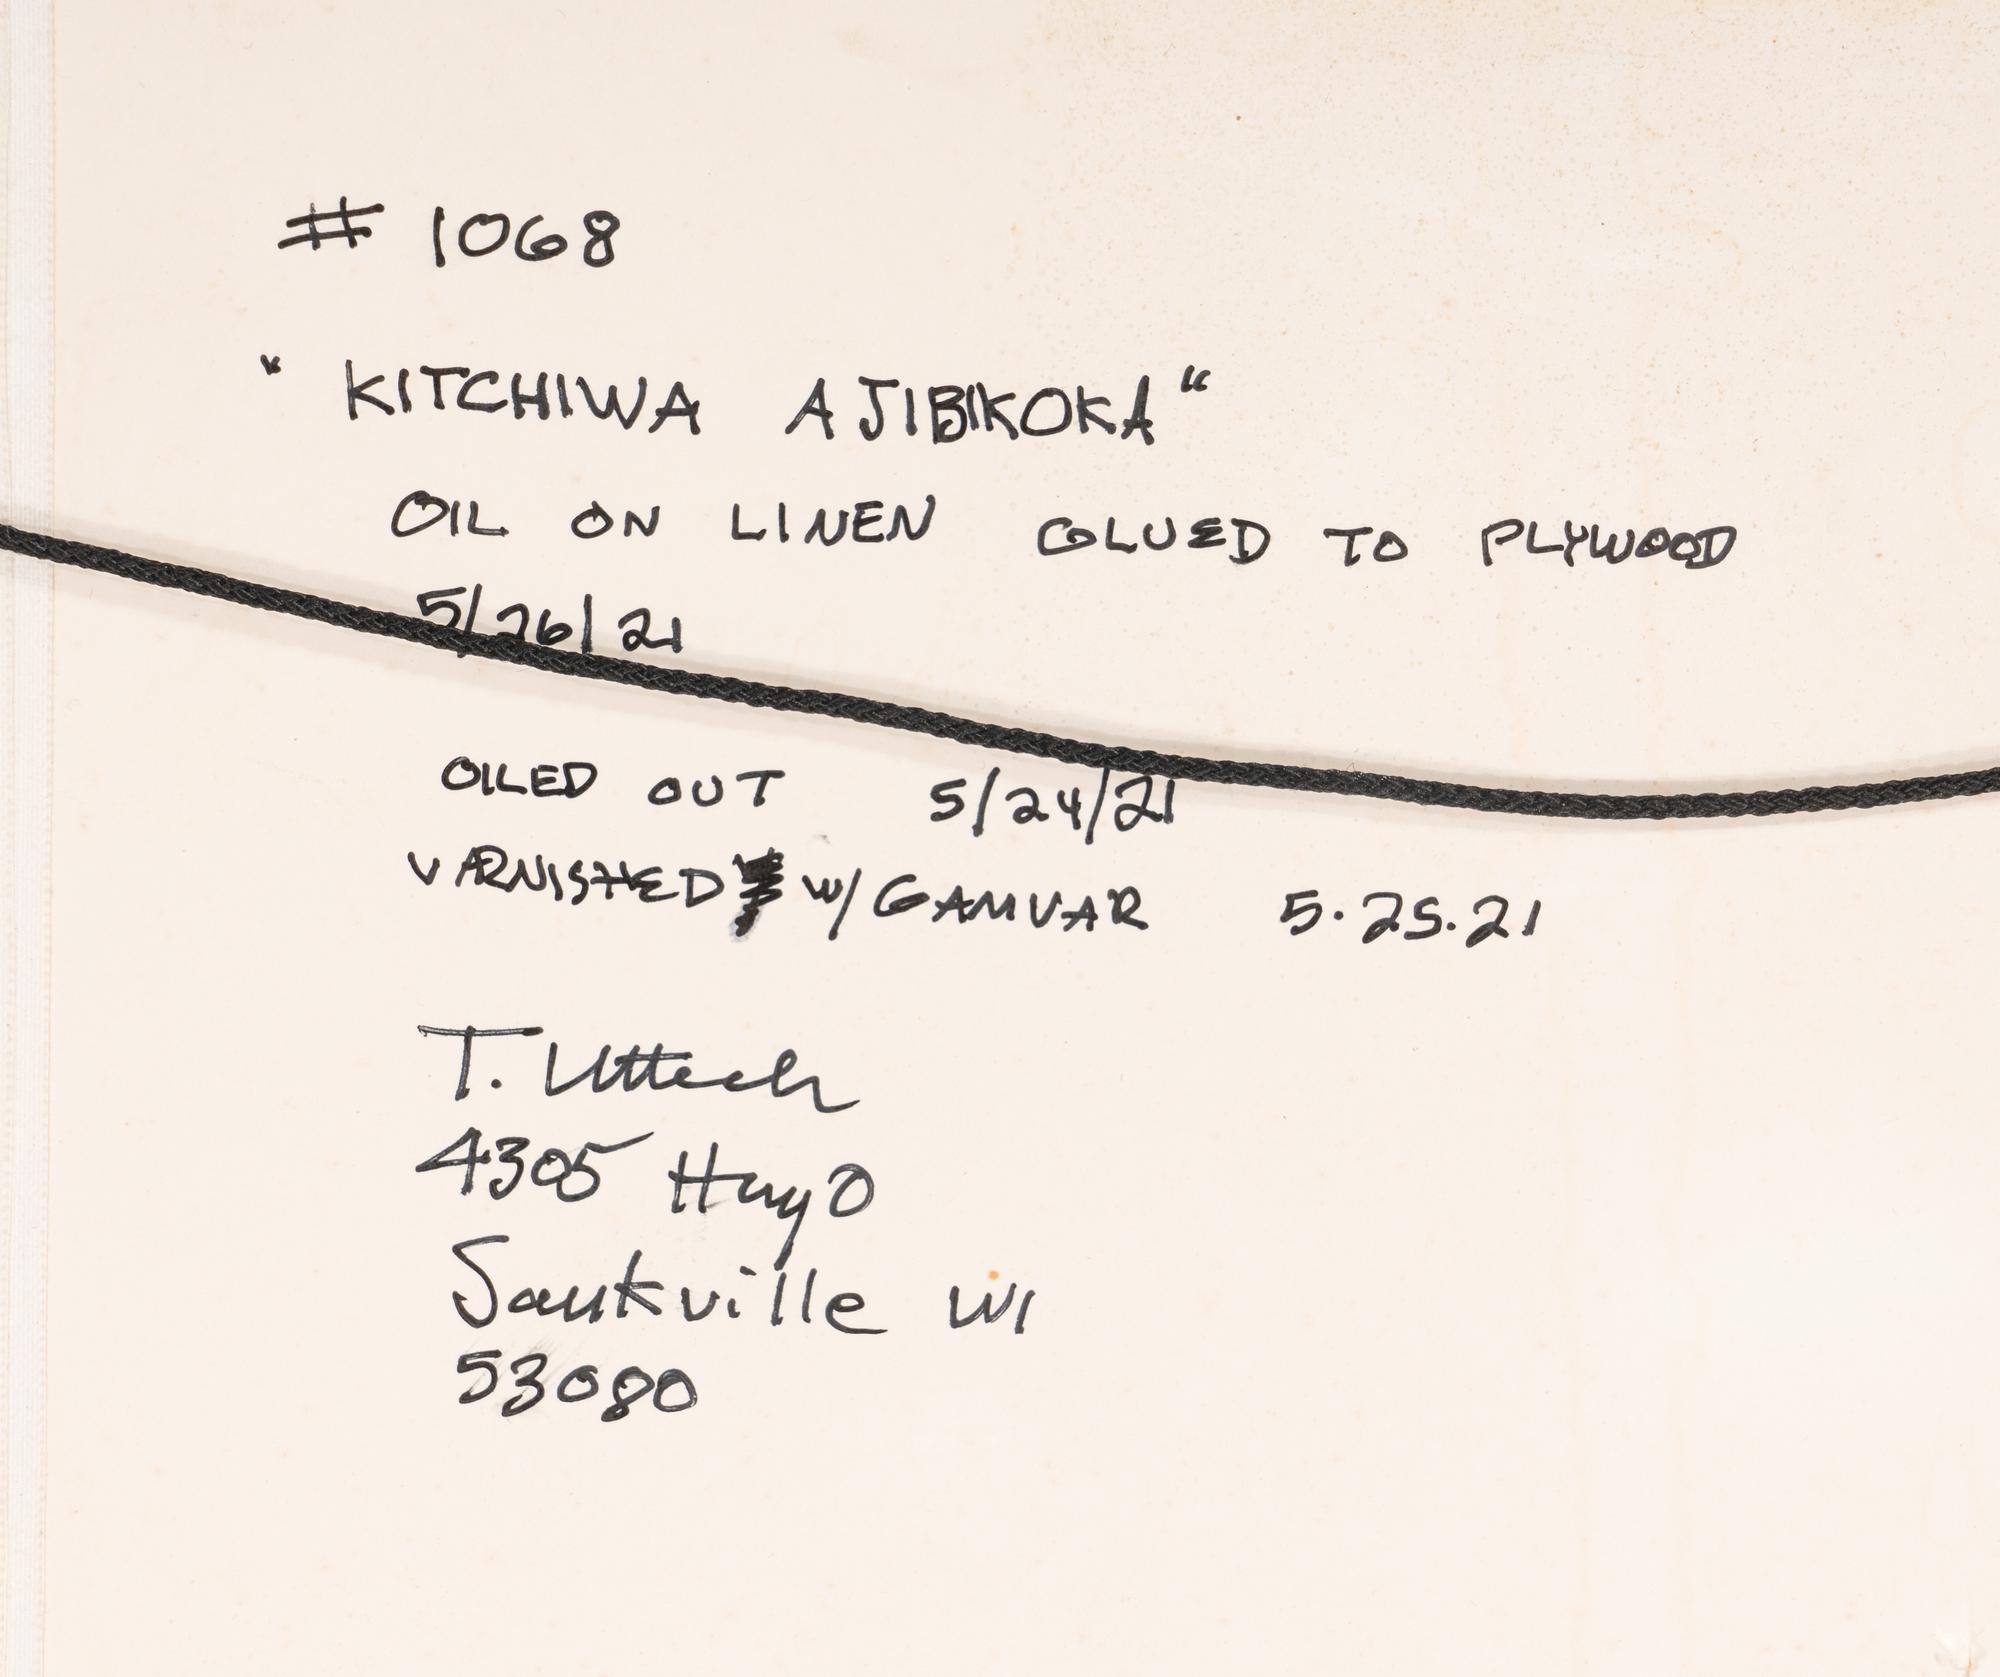 # 1068
" KITCHIWA AJIBIKOKA "
OIL ON LINEN GLUED TO PLYWOOD
5/26/21
OILED OUT 5/24/21
VARNISHED w/ GAMVAR 5.25.21
T. Uttech
4305 Hwy O
Saukville WI
53080